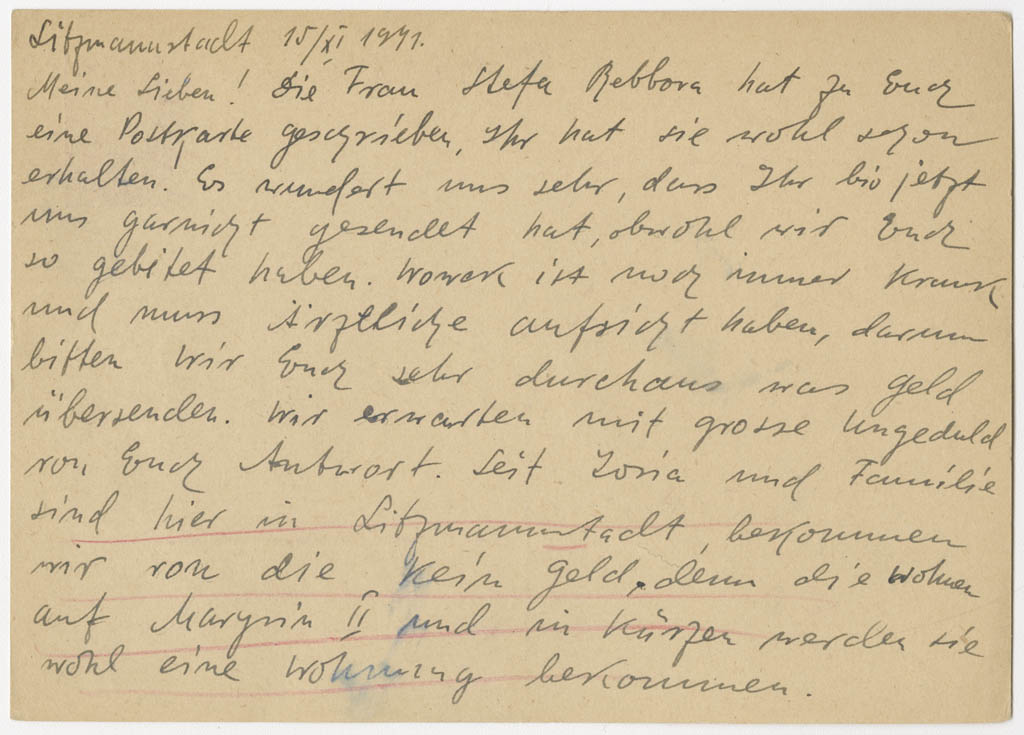 Litzmannstadt 15/XI 1941.
Meine Lieben! Die Frau Stefa Rebbora hat zu Euch
eine Postkarte geschrieben, Ihr hat sie wohl schon
erhalten! Es wundert uns sehr, dass Ihr bis jetzt
uns garnicht gesendet hat, obwohl wir Euch
so gebitet haben. Wowek ist noch immer Krank
und muss Ärztliche aufsicht haben, darum
bitten Wir Euch sehr durchaus was Geld
übersenden. Wir erwarten mit grosse Ungeduld
von Euch Antwort. Seit Zosia und Familie
sind hier in Litzmannstadt, bekommen
wir von die kein Geld, denn die Wohnen
auf Marysin II und in Kürzen werden sie
wohl eine Wohnung bekommen.